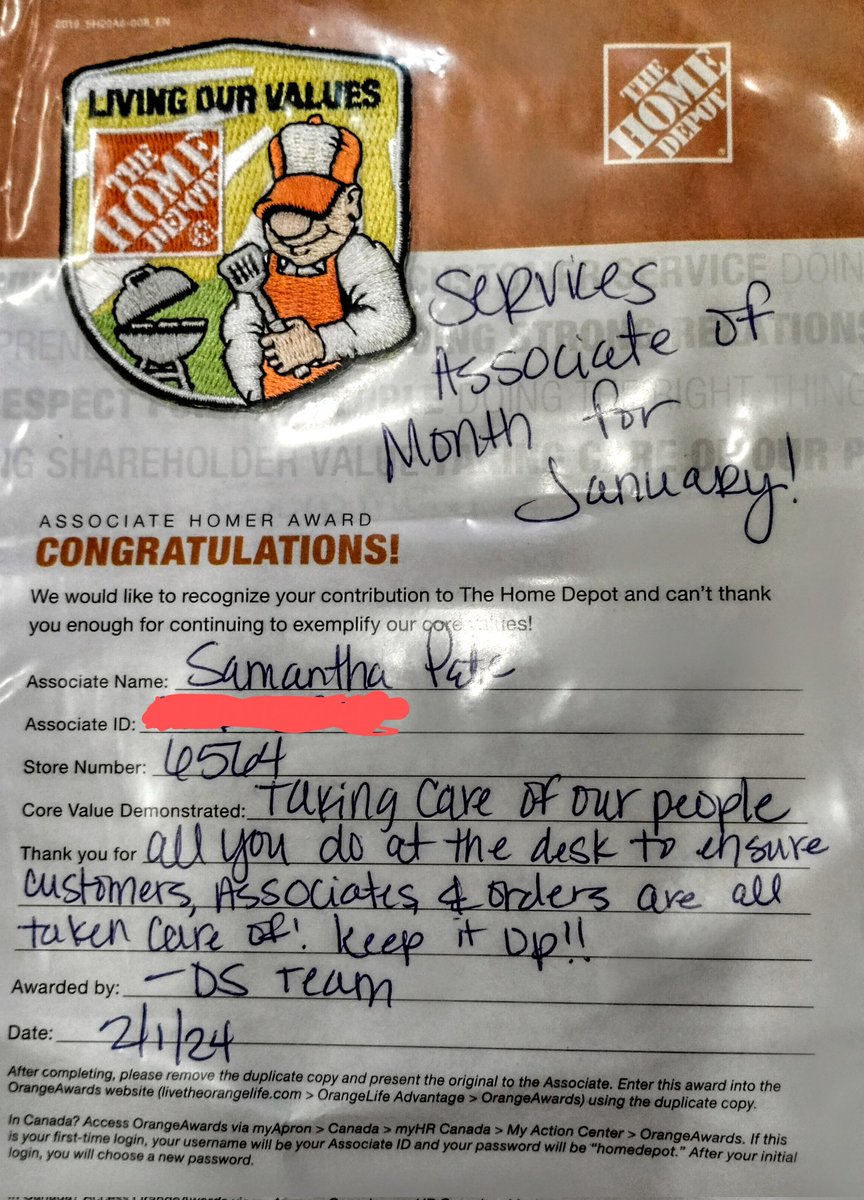 2019_SH20A6-008_EN
LIVING OUR VALUES
THE
HOME
DEPOT
THE
HOME
DEPOT
CUSTOMER SERVICE DOIN
Services
Associate of
Month for
January!
ESPECT
DOING THE RIGHT THING
NG SHAREHOLDER VALUE TAKING CARE OF OUR P
ASSOCIATE HOMER AWARD
CONGRATULATIONS!
We would like to recognize your contribution to The Home Depot and can't thank
you enough for continuing to exemplify our core values!
Associate Name: Samantha
Associate ID:
Store Number: 6564
Core Value Demonstrated: Taking care of our people
Thank you for all you do at the desk to ensure
customers, Associates & orders are all
taken care of! Keep it up!!
Awarded by: -DS Team
Date: 2/1/24
After completing, please remove the duplicate copy and present the original to the Associate. Enter this award into the
OrangeAwards website (livetheorangelife.com > OrangeLife Advantage > OrangeAwards) using the duplicate copy.
In Canada? Access OrangeAwards via myApron > Canada > myHR Canada > My Action Center > OrangeAwards. If this
is your first-time login, your username will be your Associate ID and your password will be "homedepot." After your initial
login, you will choose a new password.